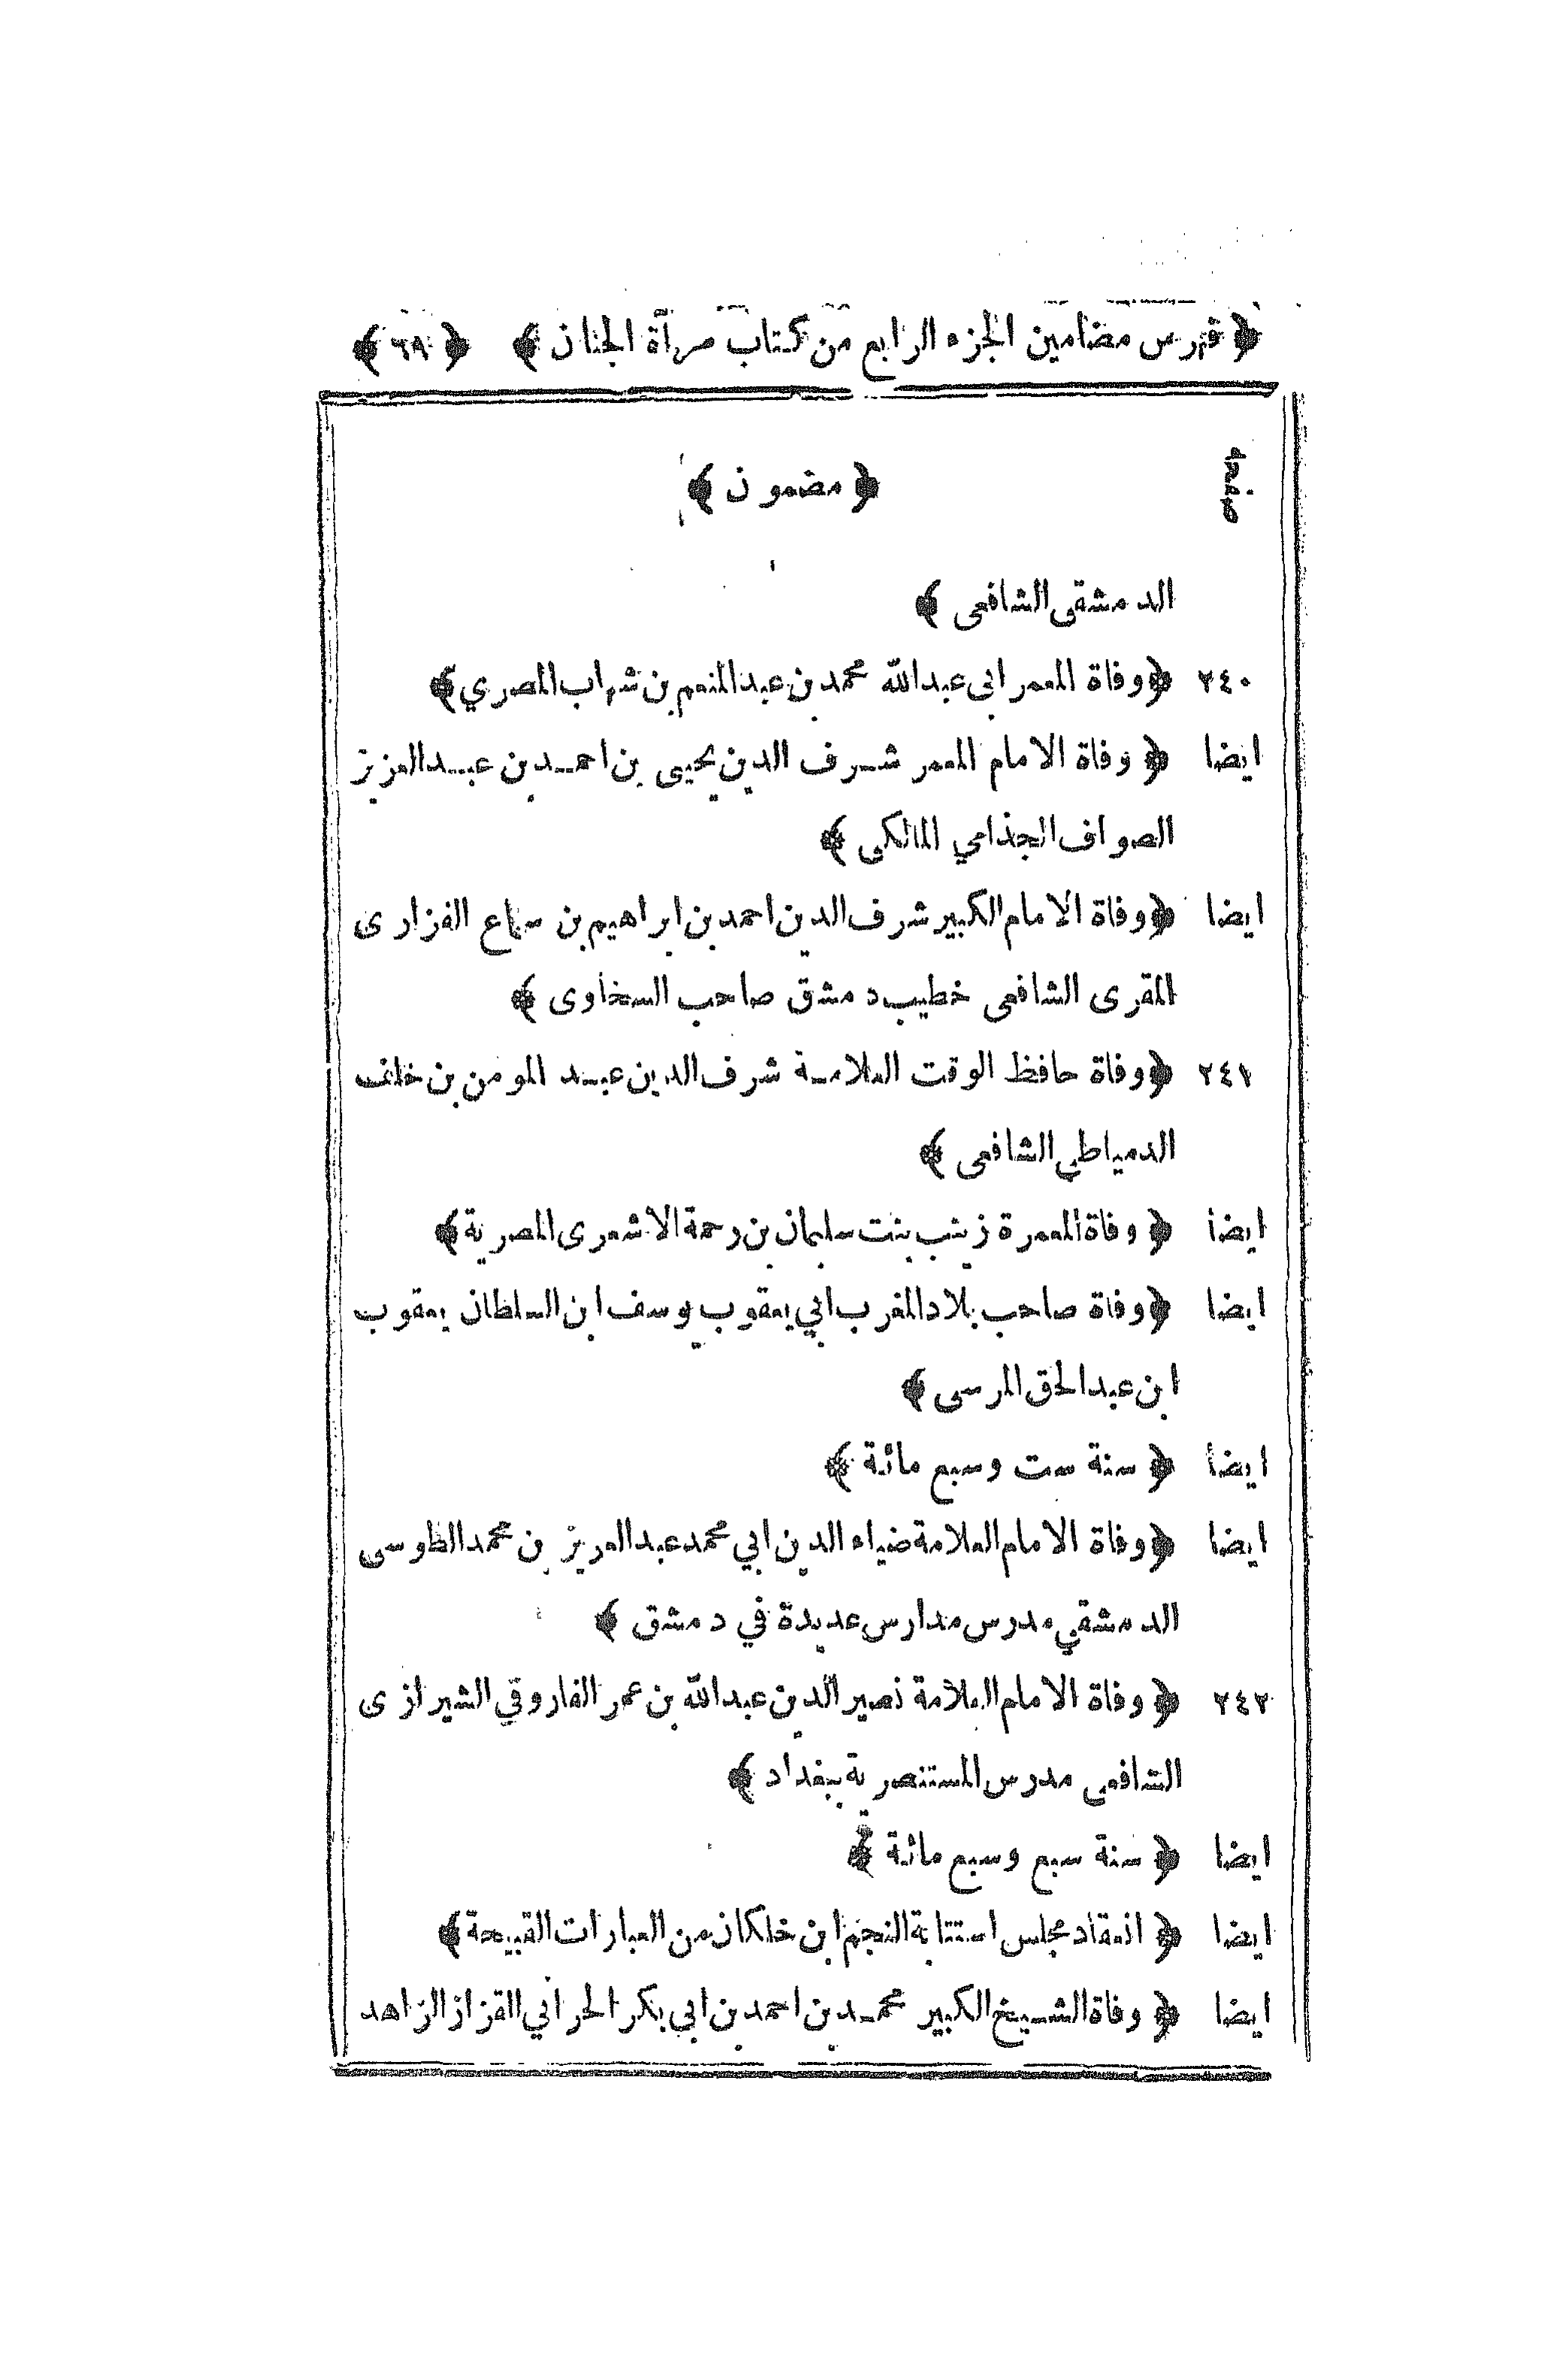 ﴿ فهرس مضامين الجزء الرابع من كتاب مرآة الجنان ﴾ ﴿ ٦٩ ﴾
صفحه ﴿ مضمون ﴾
الدمشقى الشافعى ﴾
٢٤٠ ﴿ وفاة المعمر ابى عبدالله محمد بن عبدالمنعم بن شهاب المصري ﴾
ايضا ﴿ وفاة الامام المعمر شرف الدين يحيى بن احمد بن عبدالعزيز
الصواف الجذامي المالكى ﴾
ايضا ﴿ وفاة الامام الكبير شرف الدين احمد بن ابراهيم بن سباع الفزارى
المقرى الشافعى خطيب دمشق صاحب السخاوى ﴾
٢٤١ ﴿ وفاة حافظ الوقت العلامة شرف الدين عبد المومن بن خلف
الدمياطي الشافعى ﴾
ايضا ﴿ وفاة المعمرة زينب بنت سليمان بن رحمة الاشعرى المصرية ﴾
ايضا ﴿ وفاة صاحب بلاد المغرب ابي يعقوب يوسف ابن السلطان يعقوب
ابن عبدالحق المرسى ﴾
ايضا ﴿ سنة ست وسبع مائة ﴾
ايضا ﴿ وفاة الامام العلامة ضياء الدين ابي محمد عبدالعزيز بن محمد الطوسى
الدمشقي مدرس مدارس عديدة في دمشق ﴾
٢٤٢ ﴿ وفاة الامام العلامة نصير الدين عبدالله بن عمر الفاروقي الشيرازى
الشافعى مدرس المستنصرية ببغداد ﴾
ايضا ﴿ سنة سبع وسبع مائة ﴾
ايضا ﴿ انعقاد مجلس استتابة النجم ابن خلكان من العبارات القبيحة ﴾
ايضا ﴿ وفاة الشيخ الكبير محمد بن احمد بن ابي بكر الحراني القزاز الزاهد